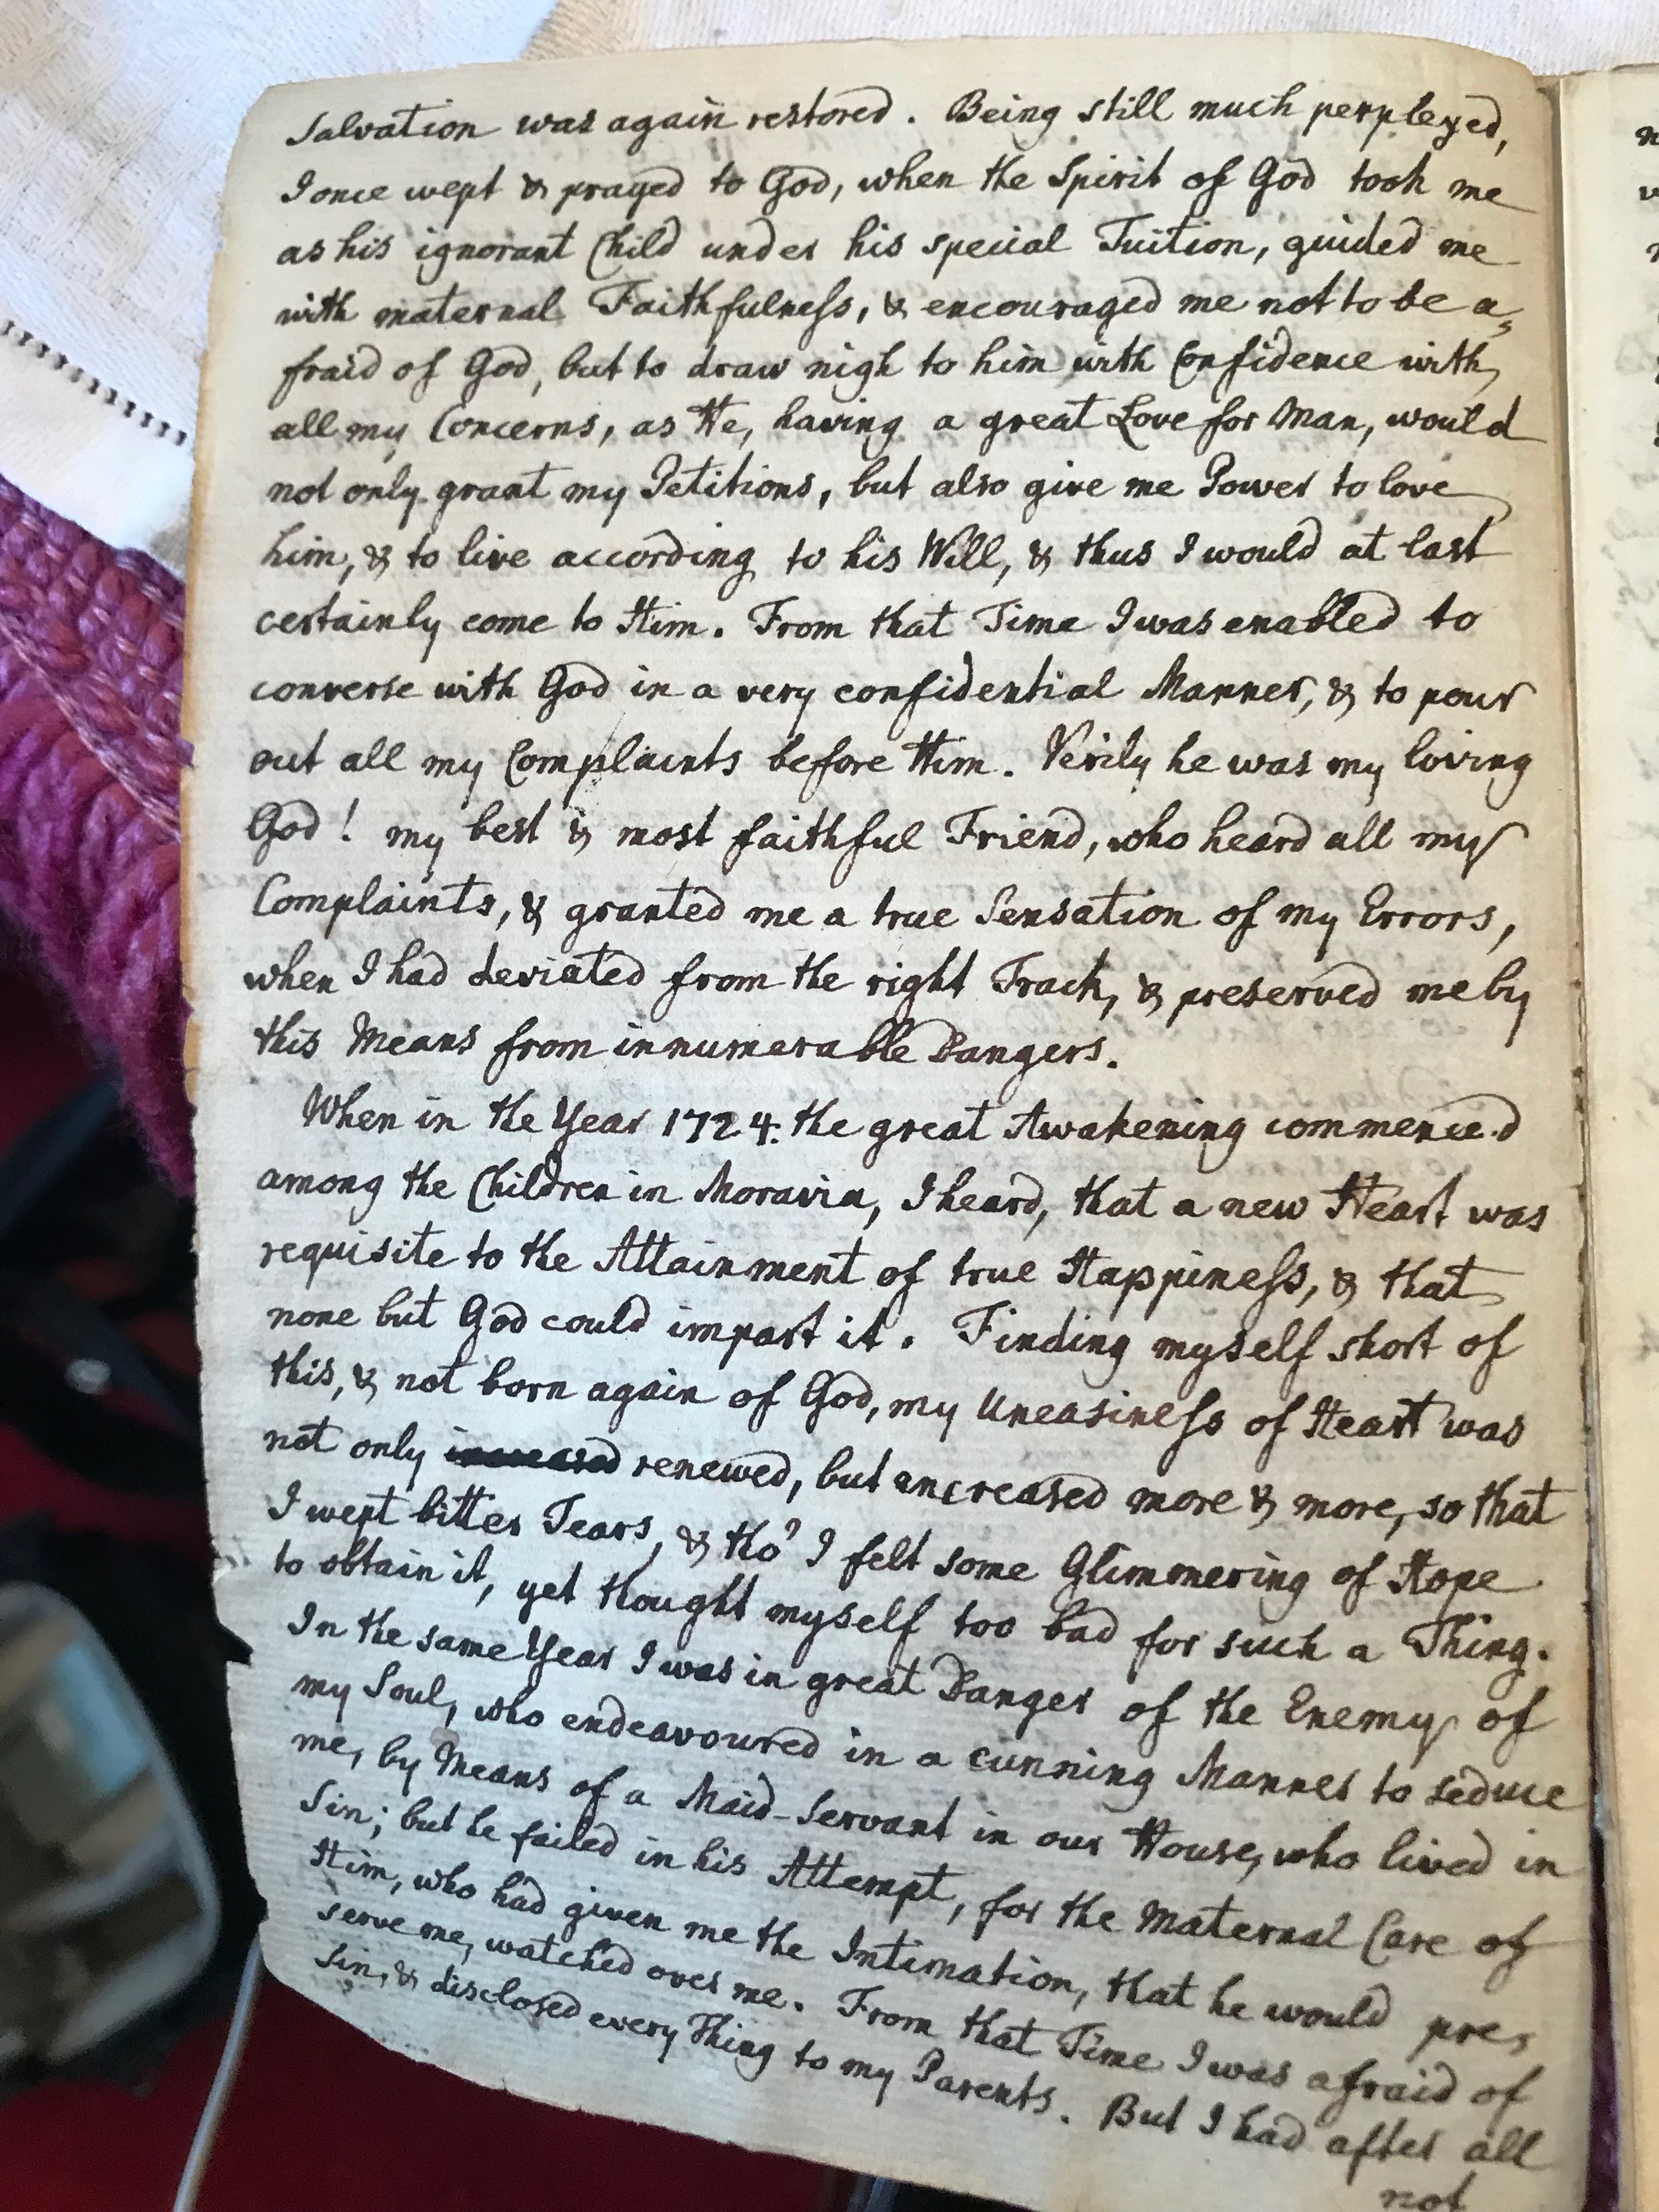 Salvation was again restored. Being still much perplexed,
I once wept & prayed to God, when the Spirit of God took me
as his ignorant Child under his special Tuition, guided me
with maternal Faithfulness, & encouraged me not to be a,,
fraid of God, but to draw nigh to him with Confidence with
all my Concerns, as He, having a great Love for Man, would
not only grant my Petitions, but also give me Power to love
him, & to live according to his Will, & thus I would at last
certainly come to Him. From that Time I was enabled to
converse with God in a very confidential Manner, & to pour
out all my Complaints before Him. Verily he was my loving
God! my best & most faithful Friend, who heard all my
Complaints, & granted me a true Sensation of my Errors,
when I had deviated from the right Track, & preserved me by
this Means from innumerable Dangers.
When in the Year 1724. the great Awakening commenced
among the Children in Moravia, I heard, that a new Heart was
requisite to the Attainment of true Happiness, & that
none but God could impart it. Finding myself short of
this, & not born again of God, my Uneasiness of Heart was
not only increased renewed, but ancreased more & more, so that
I wept bitter Tears, & tho' I felt some Glimmering of Hope
to obtain it, yet thought myself too bad for such a Thing.
In the same Year I was in great Danger of the Enemy of
my Soul, who endeavoured in a cunning Manner to seduce
me, by Means of a Maid-Servant in our House, who lived in
Sin; but he failed in his Attempt, for the Maternal Care of
Him, who had given me the Intimation, that he would pre,,
serve me, watched over me. From that Time I was afraid of
Sin, & disclosed every Thing to my Parents. But I had after all
not